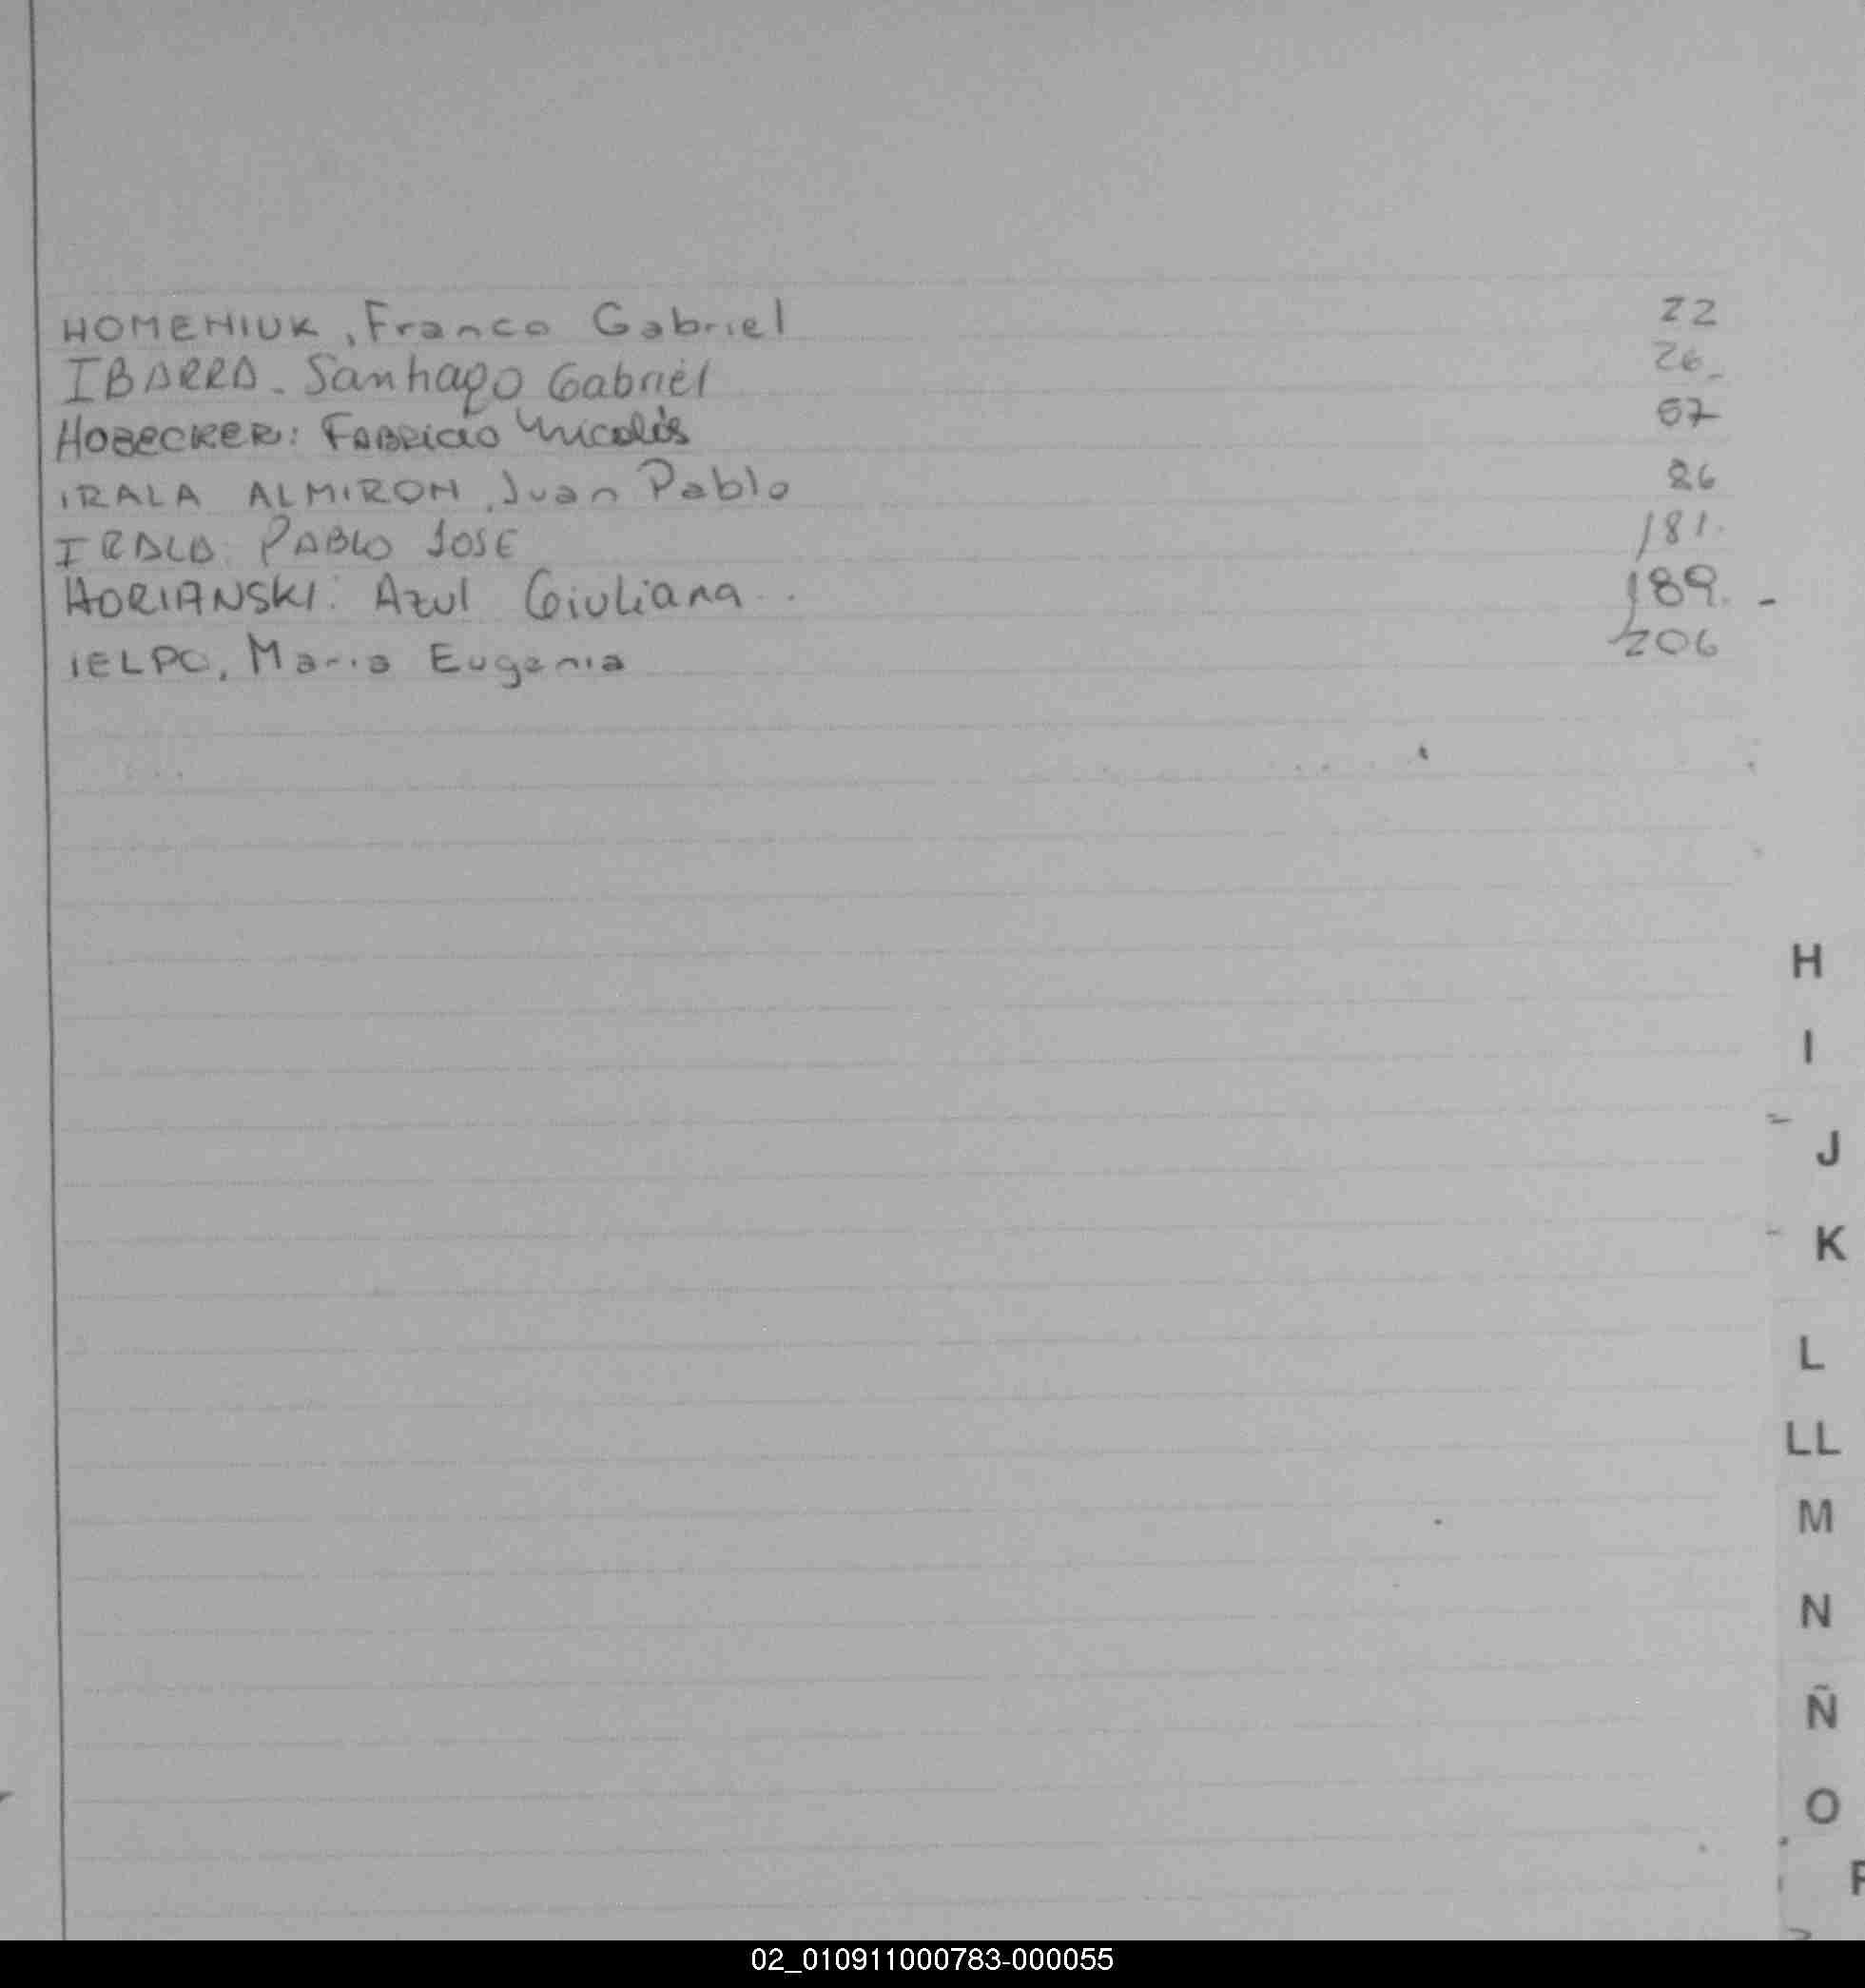 HOMENIUK, Franco Gabriel 22
IBARRA - Santiago Gabriel 26_
HOBECKER: FABRICIO Nicolás 57
IRALA ALMIRON, Juan Pablo 86
IRALA: PABLO JOSE 181.
HORIANSKI: Azul Giuliana.. 189. -
IELPO, Maria Eugenia 206
H
I
J
K
L
LL
M
N
Ñ
O
02_010911000783-000055